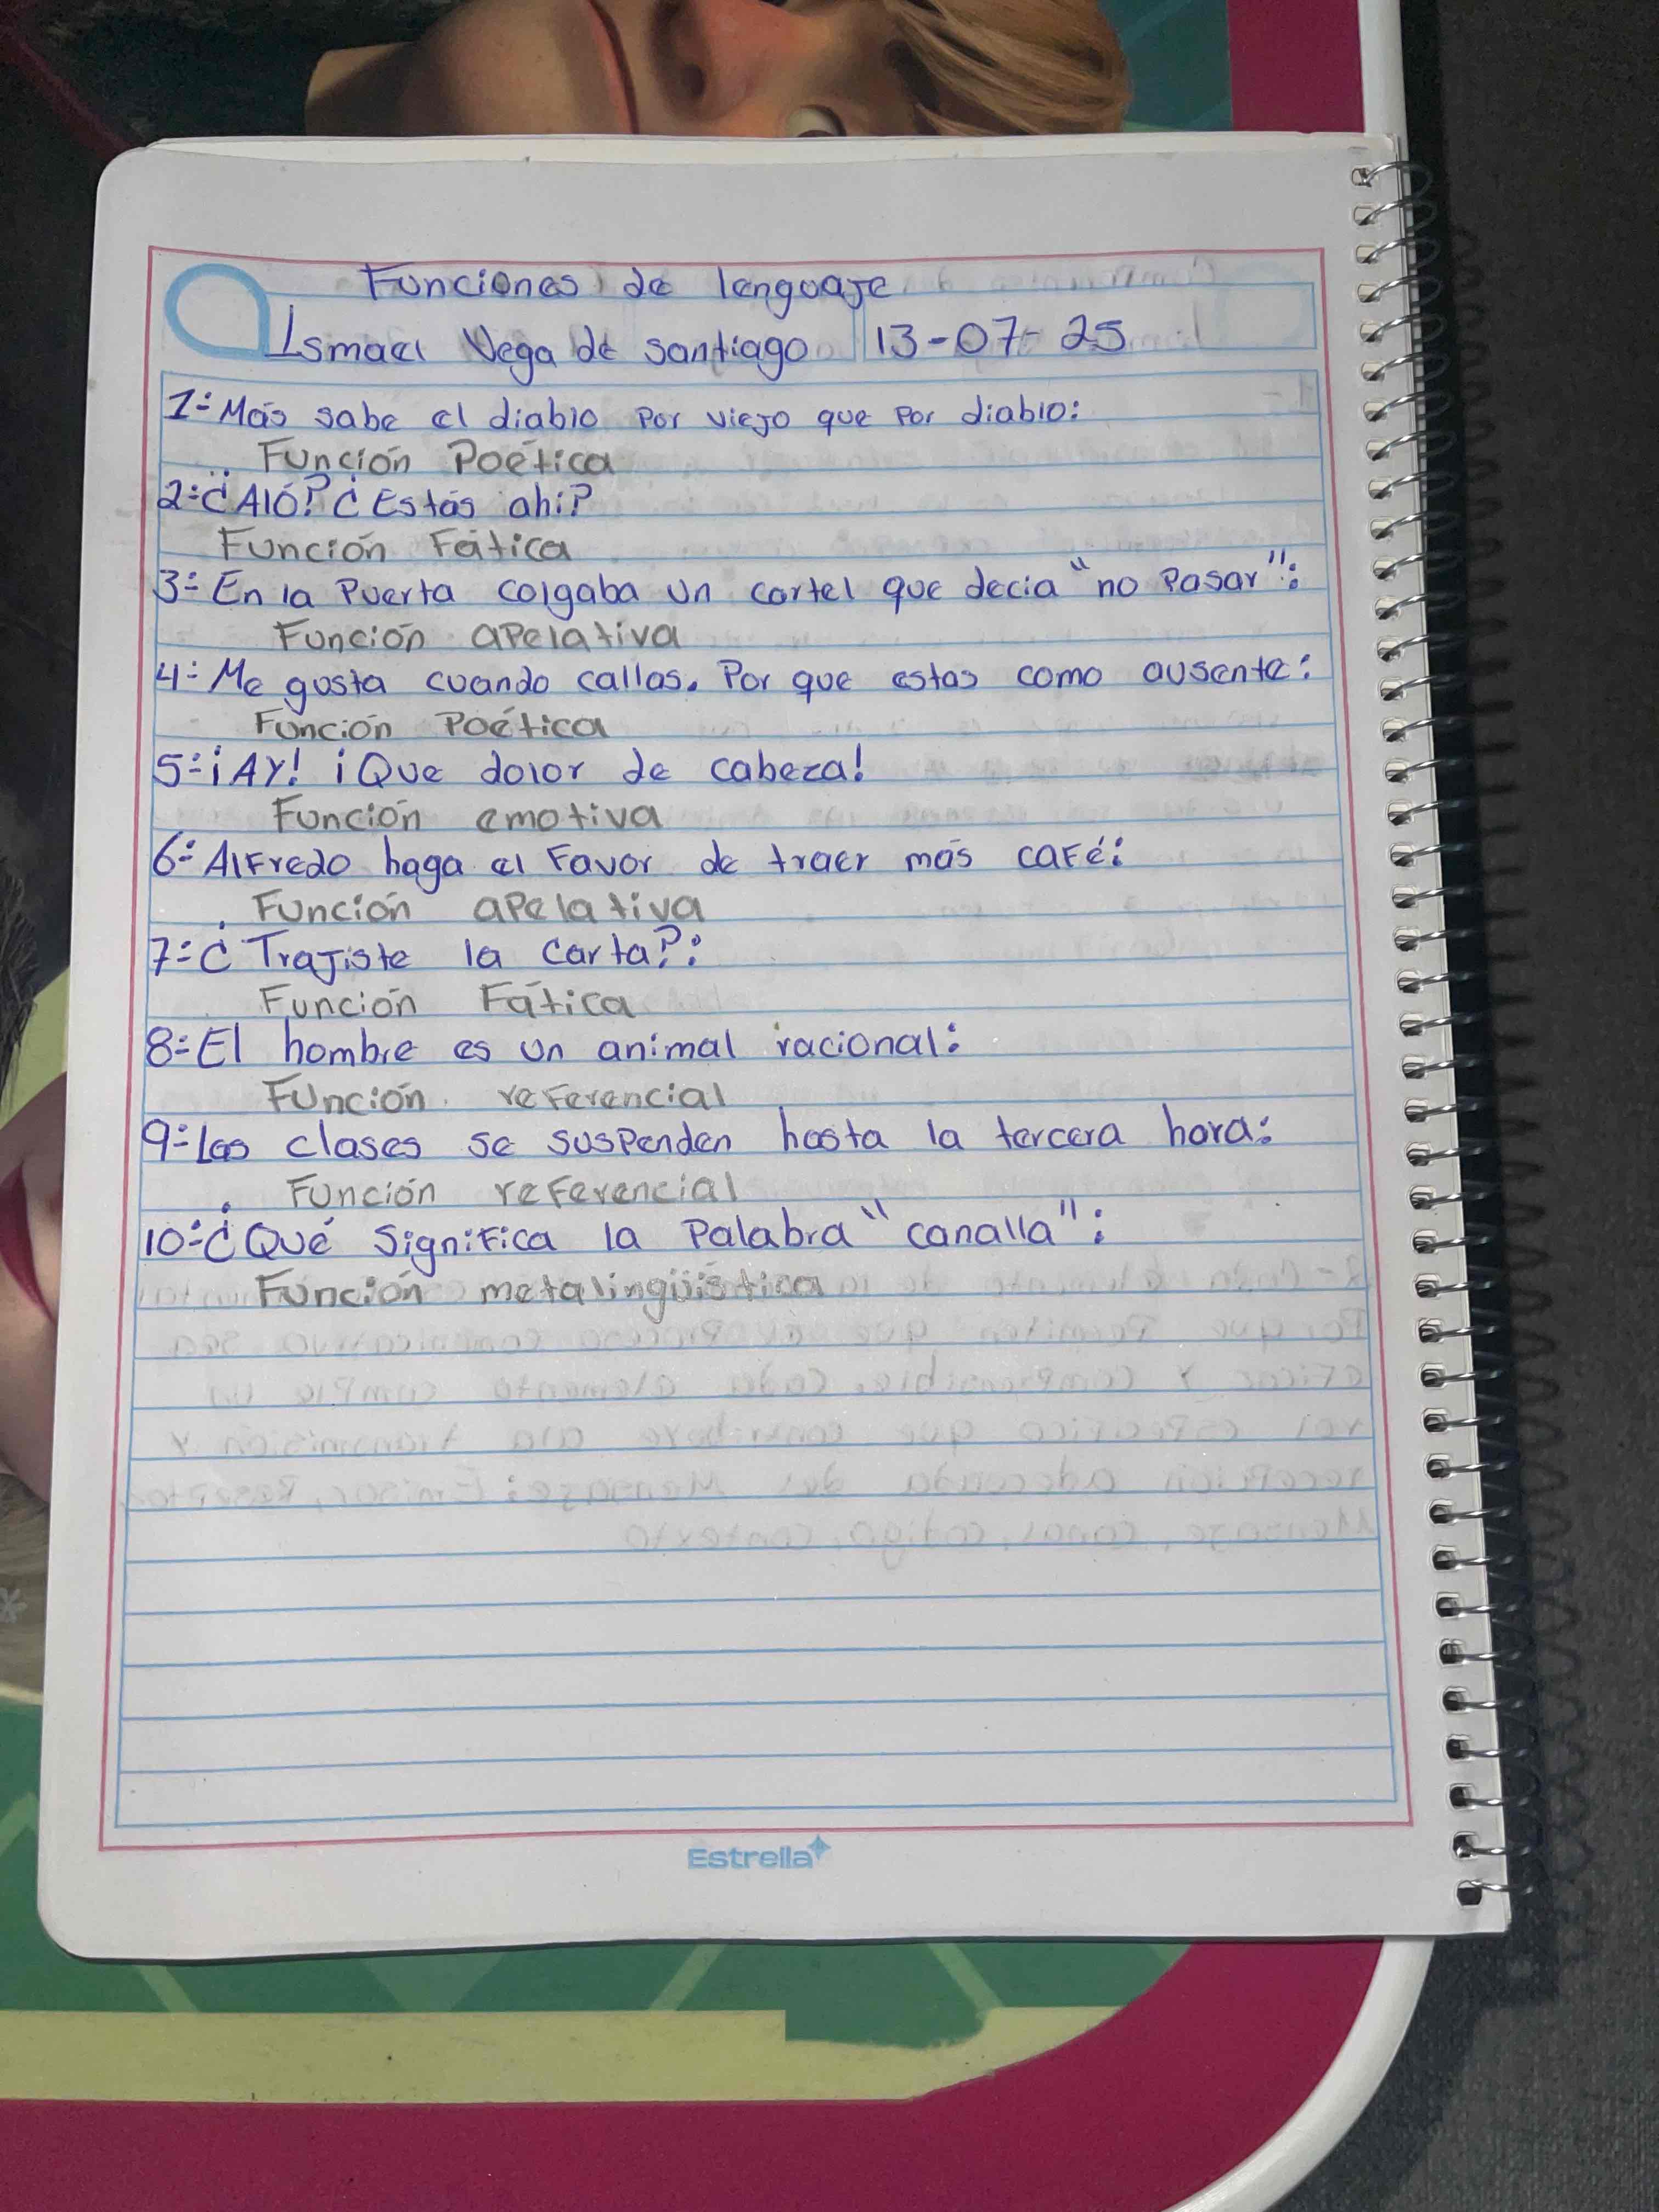 Funciones de lenguaje
Ismael Vega de santiago 13-07-25
1- Más sabe el diablo por viejo que por diablo:
Función Poética
2- ¿Aló? ¿Estás ahi?
Función Fática
3- En la Puerta colgaba un cartel que decia "no Pasar":
Función apelativa
4- Me gusta cuando callas. Por que estas como ausente:
Función Poética
5- ¡Ay! ¡Que dolor de cabeza!
Función emotiva
6- Alfredo haga el Favor de traer más café:
Función apelativa
7- ¿Trajiste la carta?:
Función Fática
8- El hombre es un animal racional:
Función referencial
9- Las clases se suspenden hasta la tercera hora:
Función referencial
10- ¿Qué significa la Palabra "canalla":
Función metalingüistica
Estrella